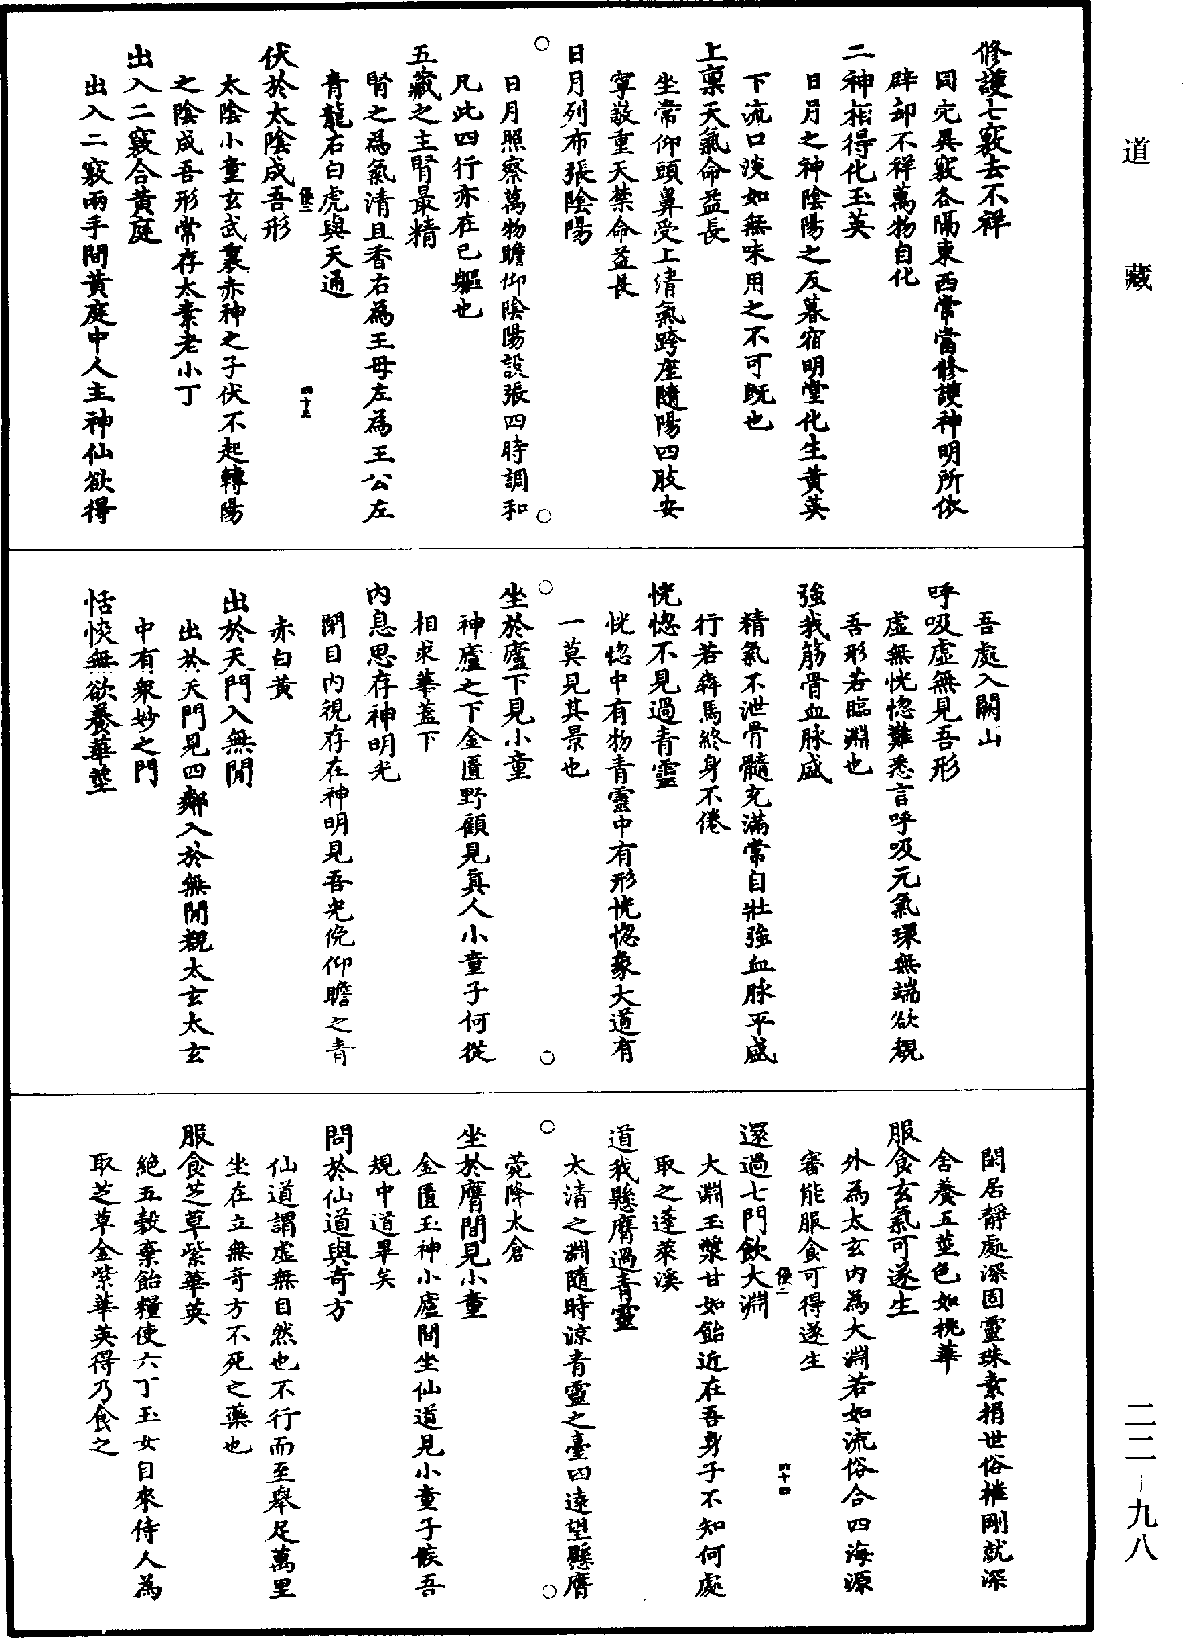 道藏
修護七竅去不祥
同宂異竅各隔東西常當修護神明所依
辟却不祥萬物自化
二神相得化玉英
日月之神陰陽之反暮宿明堂化生黃英
下流口淡如無味用之不可既也
上稟天氣命益長
坐常仰頭鼻受上清氣跨座隨陽四肢安
寧敬重天禁命益長
日月列布張陰陽
日月照察萬物瞻仰陰陽設張四時調和
凡此四行亦在已軀也
五藏之主腎最精
腎之為氣清且香右為王母左為王公左
青龍右白虎與天通
伏於太陰成吾形
四十三
太陰小童玄武裏赤神之子伏不起轉陽
之陰成吾形常存太素老小丁
出入二竅合黃庭
出入二竅兩手間黃庭中人主神仙欲得
吾處入闕山
呼吸虛無見吾形
虛無恍惚難悉言呼吸元氣環無端欲覩
吾形若臨淵也
強我筋骨血脉盛
精氣不泄骨髓充滿常自壯強血脉平盛
行若犇馬終身不倦
恍惚不見過青靈
恍惚中有物青靈中有形恍惚象大道有
一莫見其景也
坐於廬下見小童
神廬之下金匱野顧見真人小童子何從
相求華蓋下
內息思存神明光
閉目內視存在神明見吾光俛仰瞻之青
赤白黃
出於天門入無間
出於天門見四鄰入於無間觀太玄太玄
中有衆妙之門
恬惔無欲養華莖
閑居靜處深固靈珠素捐世俗摧剛就深
舍養五莖色如桃華
服食玄氣可遂生
外為太玄內為大淵若如流俗合四海源
審能服食可得遂生
四十四
還過七門飲大淵
大淵玉漿甘如飴近在吾身子不知何處
取之蓬萊溪
道我懸膺過青靈
太清之淵隨時涼青靈之臺四遠望懸膺
莞降太倉
坐於膺間見小童
金匱玉神小廬間坐仙道見小童子候吾
規中道畢矣
問於仙道與奇方
仙道謂虛無自然也不行而至舉足萬里
坐在立無奇方不死之藥也
服食芝草紫華英
絕五穀棄飴糧使六丁玉女自來侍人為
取芝草金紫華英得乃食之
二二－九八